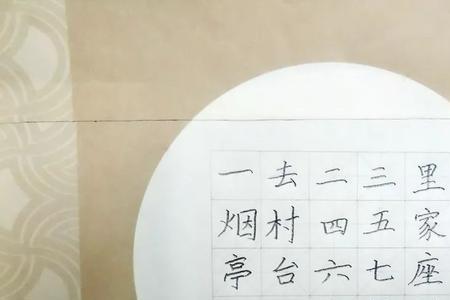 一去二三里
烟村四五家
亭台六七座